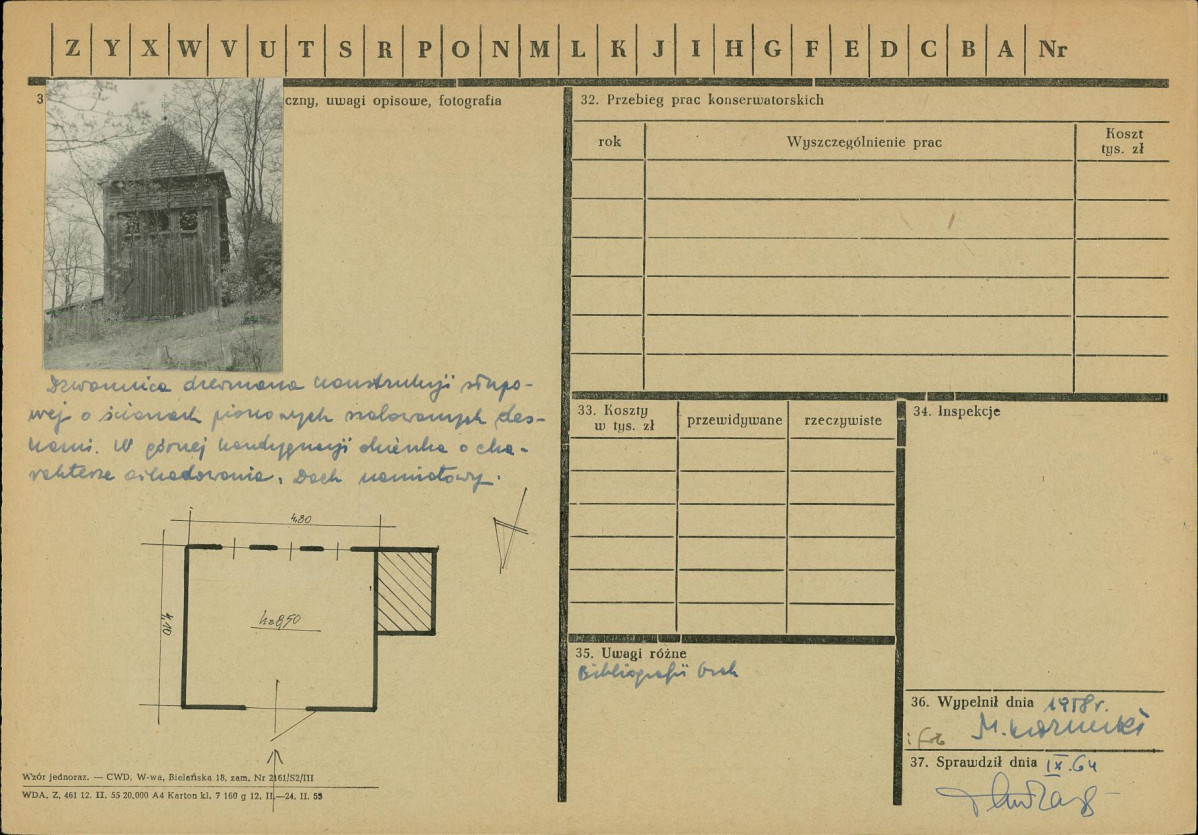 Z Y X W V U T S R P O N M L K J I H G F E D C B A Nr
3
czny, uwagi opisowe, fotografia
Dzwonnica drewniana konstrukcji słupo-
wej o ścianach pionowych szalowanych des-
kami. W górnej kondygnacji okienka o cha-
rakterze arkadowania. Dach namiotowy.
4,80
4,10
h=8,50
Wzór jednoraz. — CWD, W-wa, Bielańska 18, zam. Nr 2161/S2/III
WDA. Z. 461 12. II. 55 20.000 A4 Karton kl. 7 160 g 12. II.—24. II. 55
32. Przebieg prac konserwatorskich
rok Wyszczególnienie prac Koszt
tys. zł
33. Koszty
w tys. zł przewidywane rzeczywiste
34. Inspekcje
35. Uwagi różne
Bibliografii brak
36. Wypełnił dnia 1958 r.
M. Kornecki
i fot
37. Sprawdził dnia IX.64